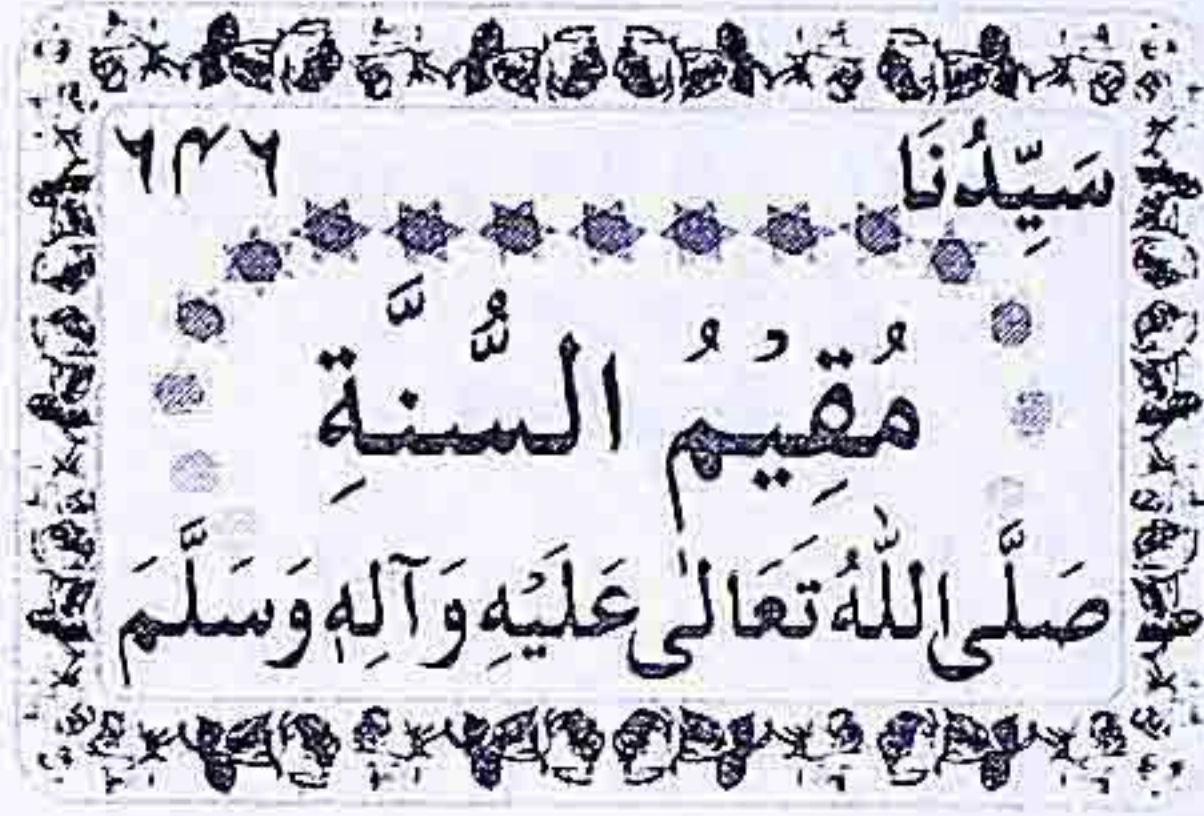 سَيِّدُنَا ٦۴٦
مُقِيْمُ السُّنَّةِ
صَلَّى اللّٰهُ تَعَالٰى عَلَيْهِ وَآلِهٖ وَسَلَّمَ